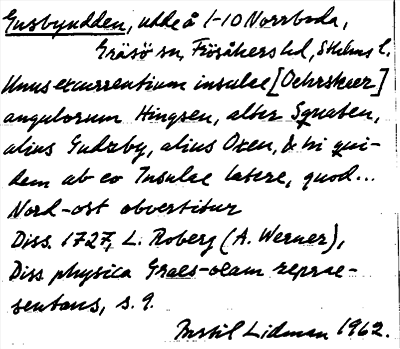 Gusbyudden, udde å 1-10 Norrboda,
Gräsö sn, Frösåkers hd, Sthlms l.
Unus excurrentium insulae [Oehrskeer]
angulorum Hingsen, alter Squaten,
alius Gudzby, alius Oxen, & hi qui-
dem ab eo Insulae latere, quod...
Nord-ost obvertitur
Diss. 1727, L. Roberg (A. Werner),
Diss physica Graes-oeam reprae-
sentans, s. 9.
Bertil Lidman 1962.